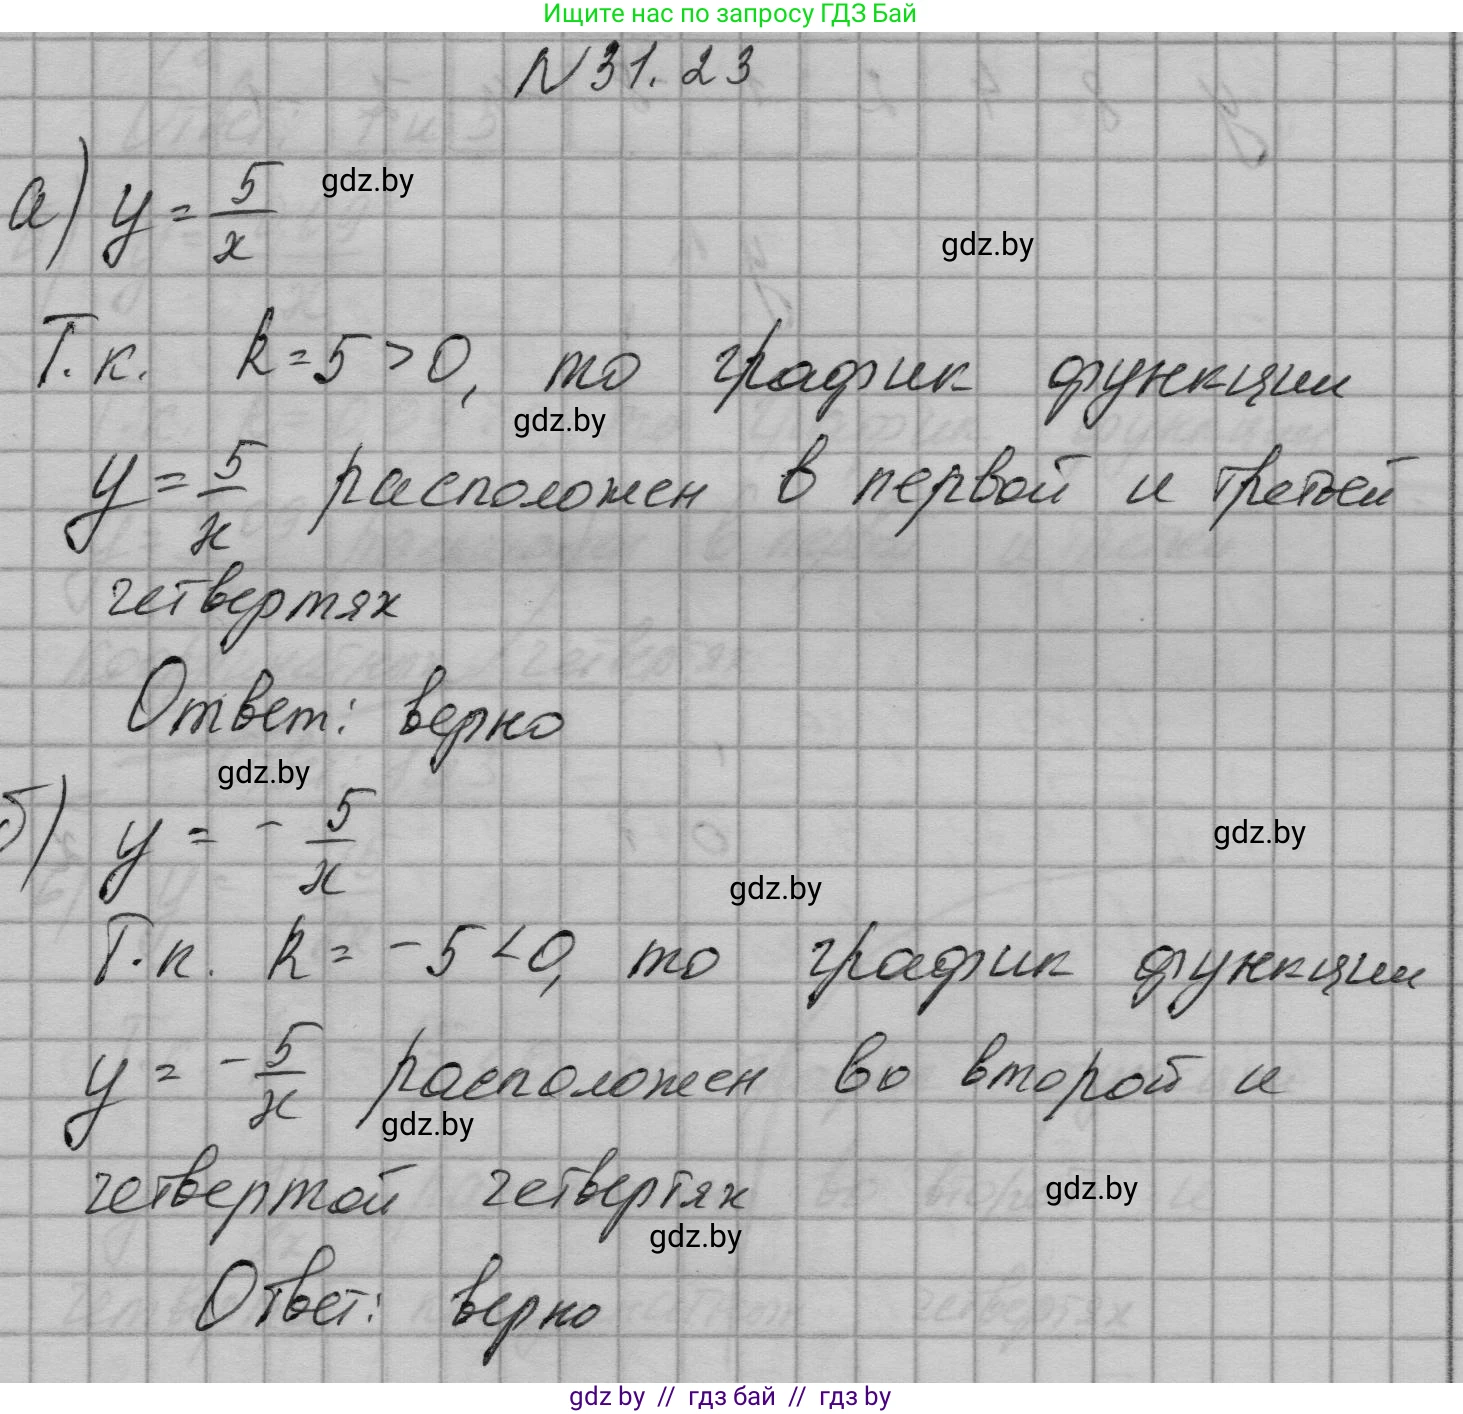 Ищите нас по запросу ГДЗ Бай
N31.23
а) y = 5/x
gdz.by
gdz.by
Т.к. k = 5 > 0, то график функции
gdz.by
y = 5/x расположен в первой и третьей
четвертях
Ответ: верно
gdz.by
б) y = - 5/x
gdz.by
gdz.by
Т.к. k = -5 < 0, то график функции
y = - 5/x расположен во второй и
gdz.by
четвертой четвертях
gdz.by
gdz.by
Ответ: верно
gdz by // гдз бай // гдз by